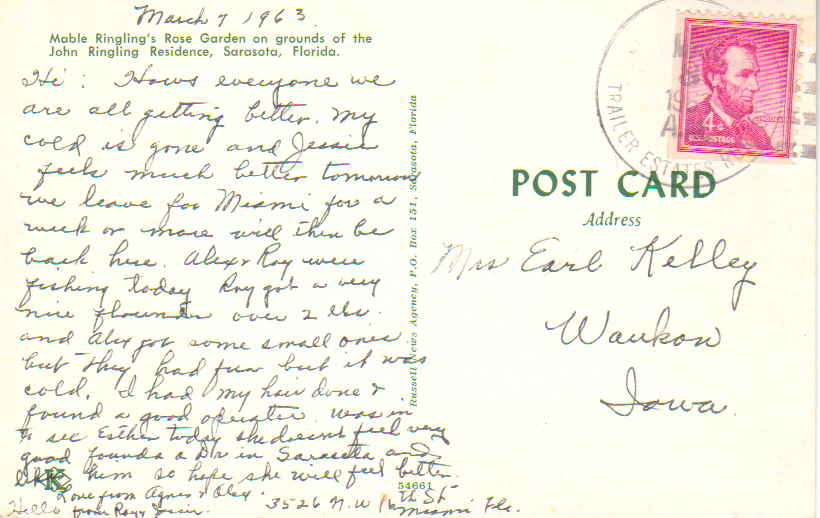 March 7 1963.
Mable Ringling's Rose Garden on grounds of the
John Ringling Residence, Sarasota, Florida.
Hi: Hows everyone we
are all getting better. My
cold is gone and Jessie
feels much better tomorrow
we leave for Miami for a
week or more will then be
back here. Alex & Roy were
fishing today Roy got a very
nice flounder over 2 lbs.
and Alex got some small ones
but they had fun but it was
cold. I had my hair done &
found a good operator. was in
to see Esther today she doesn't feel very
good found a Dr in Sarasota and
likes him so hope she will feel better
Love from Agnes & Alex.
Hello from Roy & Jessie.
3526 N.W 16th St
Miami Fla.
Russell News Agency, P.O. Box 151, Sarasota, Florida
K
54661
TRAILER ESTATES
4¢
U.S. POSTAGE
POST CARD
Address
Mrs Earl Kelley
Waukon
Iowa.